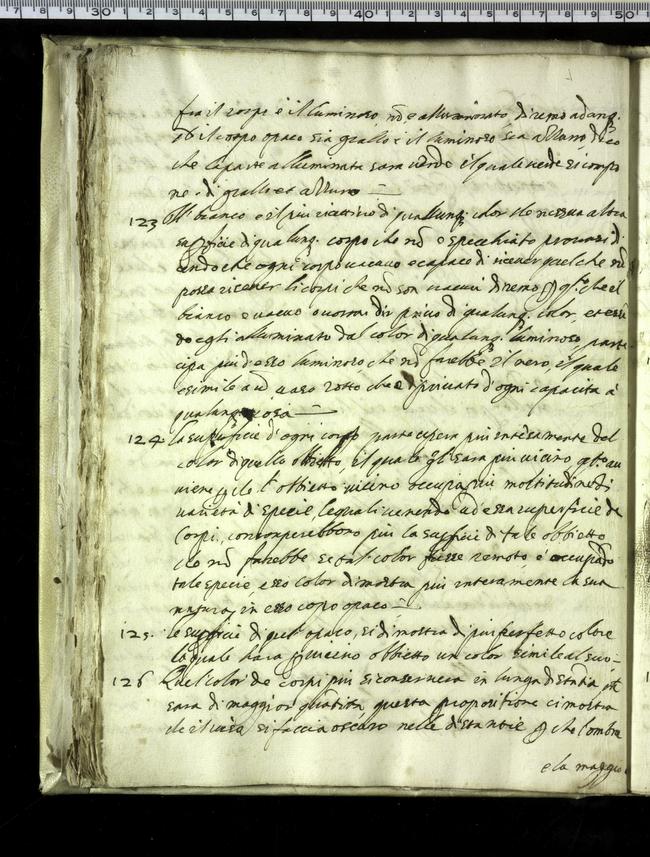 fra il corpo e il luminoso nõ e alluminato, diremo adunq.
il corpo opaco sia giallo e il luminoso sia azzurro, dico
che la parte alluminata sara verde il qual verde si compo
ne di giallo et azzurro
123 Il bianco e il più ricettivo di qualunq. color che nessuna altra
superficie di qualunq. corpo che nõ e specchiato provasi di
cendo che ogni corpo vacuo e capace di ricever quel che nõ
possa ricever li corpi che nõ son vacui diremo p qsto che il
bianco e vacuo o vuoi dir privo di qualunq. color, et essen
do egli alluminato dal color di qualunq. luminoso, parte
cipa più d'esso luminoso che nõ farebbe il nero, il quale
e simile a un vaso rotto che e privato d'ogni capacita a
qualunq. cosa
124 la superficie d'ogni corpo participera più intensamente del
color di quello obbietto, il quale gli sara più vicino qto av
viene p che l'obbietto vicino occupa più moltitudine di
varietà di specie, le quali venendo ad essa superficie de
corpi, corromperebbono più la superficie di tale obbietto
che nõ farebbe se tal color fusse remoto, e occupando
tale specie, esso color dimostra più interamente la sua
natura, in esso corpo opaco
125. le superficie di opaco, si dimostra di più perfetto colore
la quale hara p vicino obbietto un color simile al suo
126 Quel color de corpi più si conservera in lunga distantia che
sara di maggior quãtita, questa propositione ci mostra
che il viso si faccia oscuro nelle distantie p che l'ombra
e la maggio